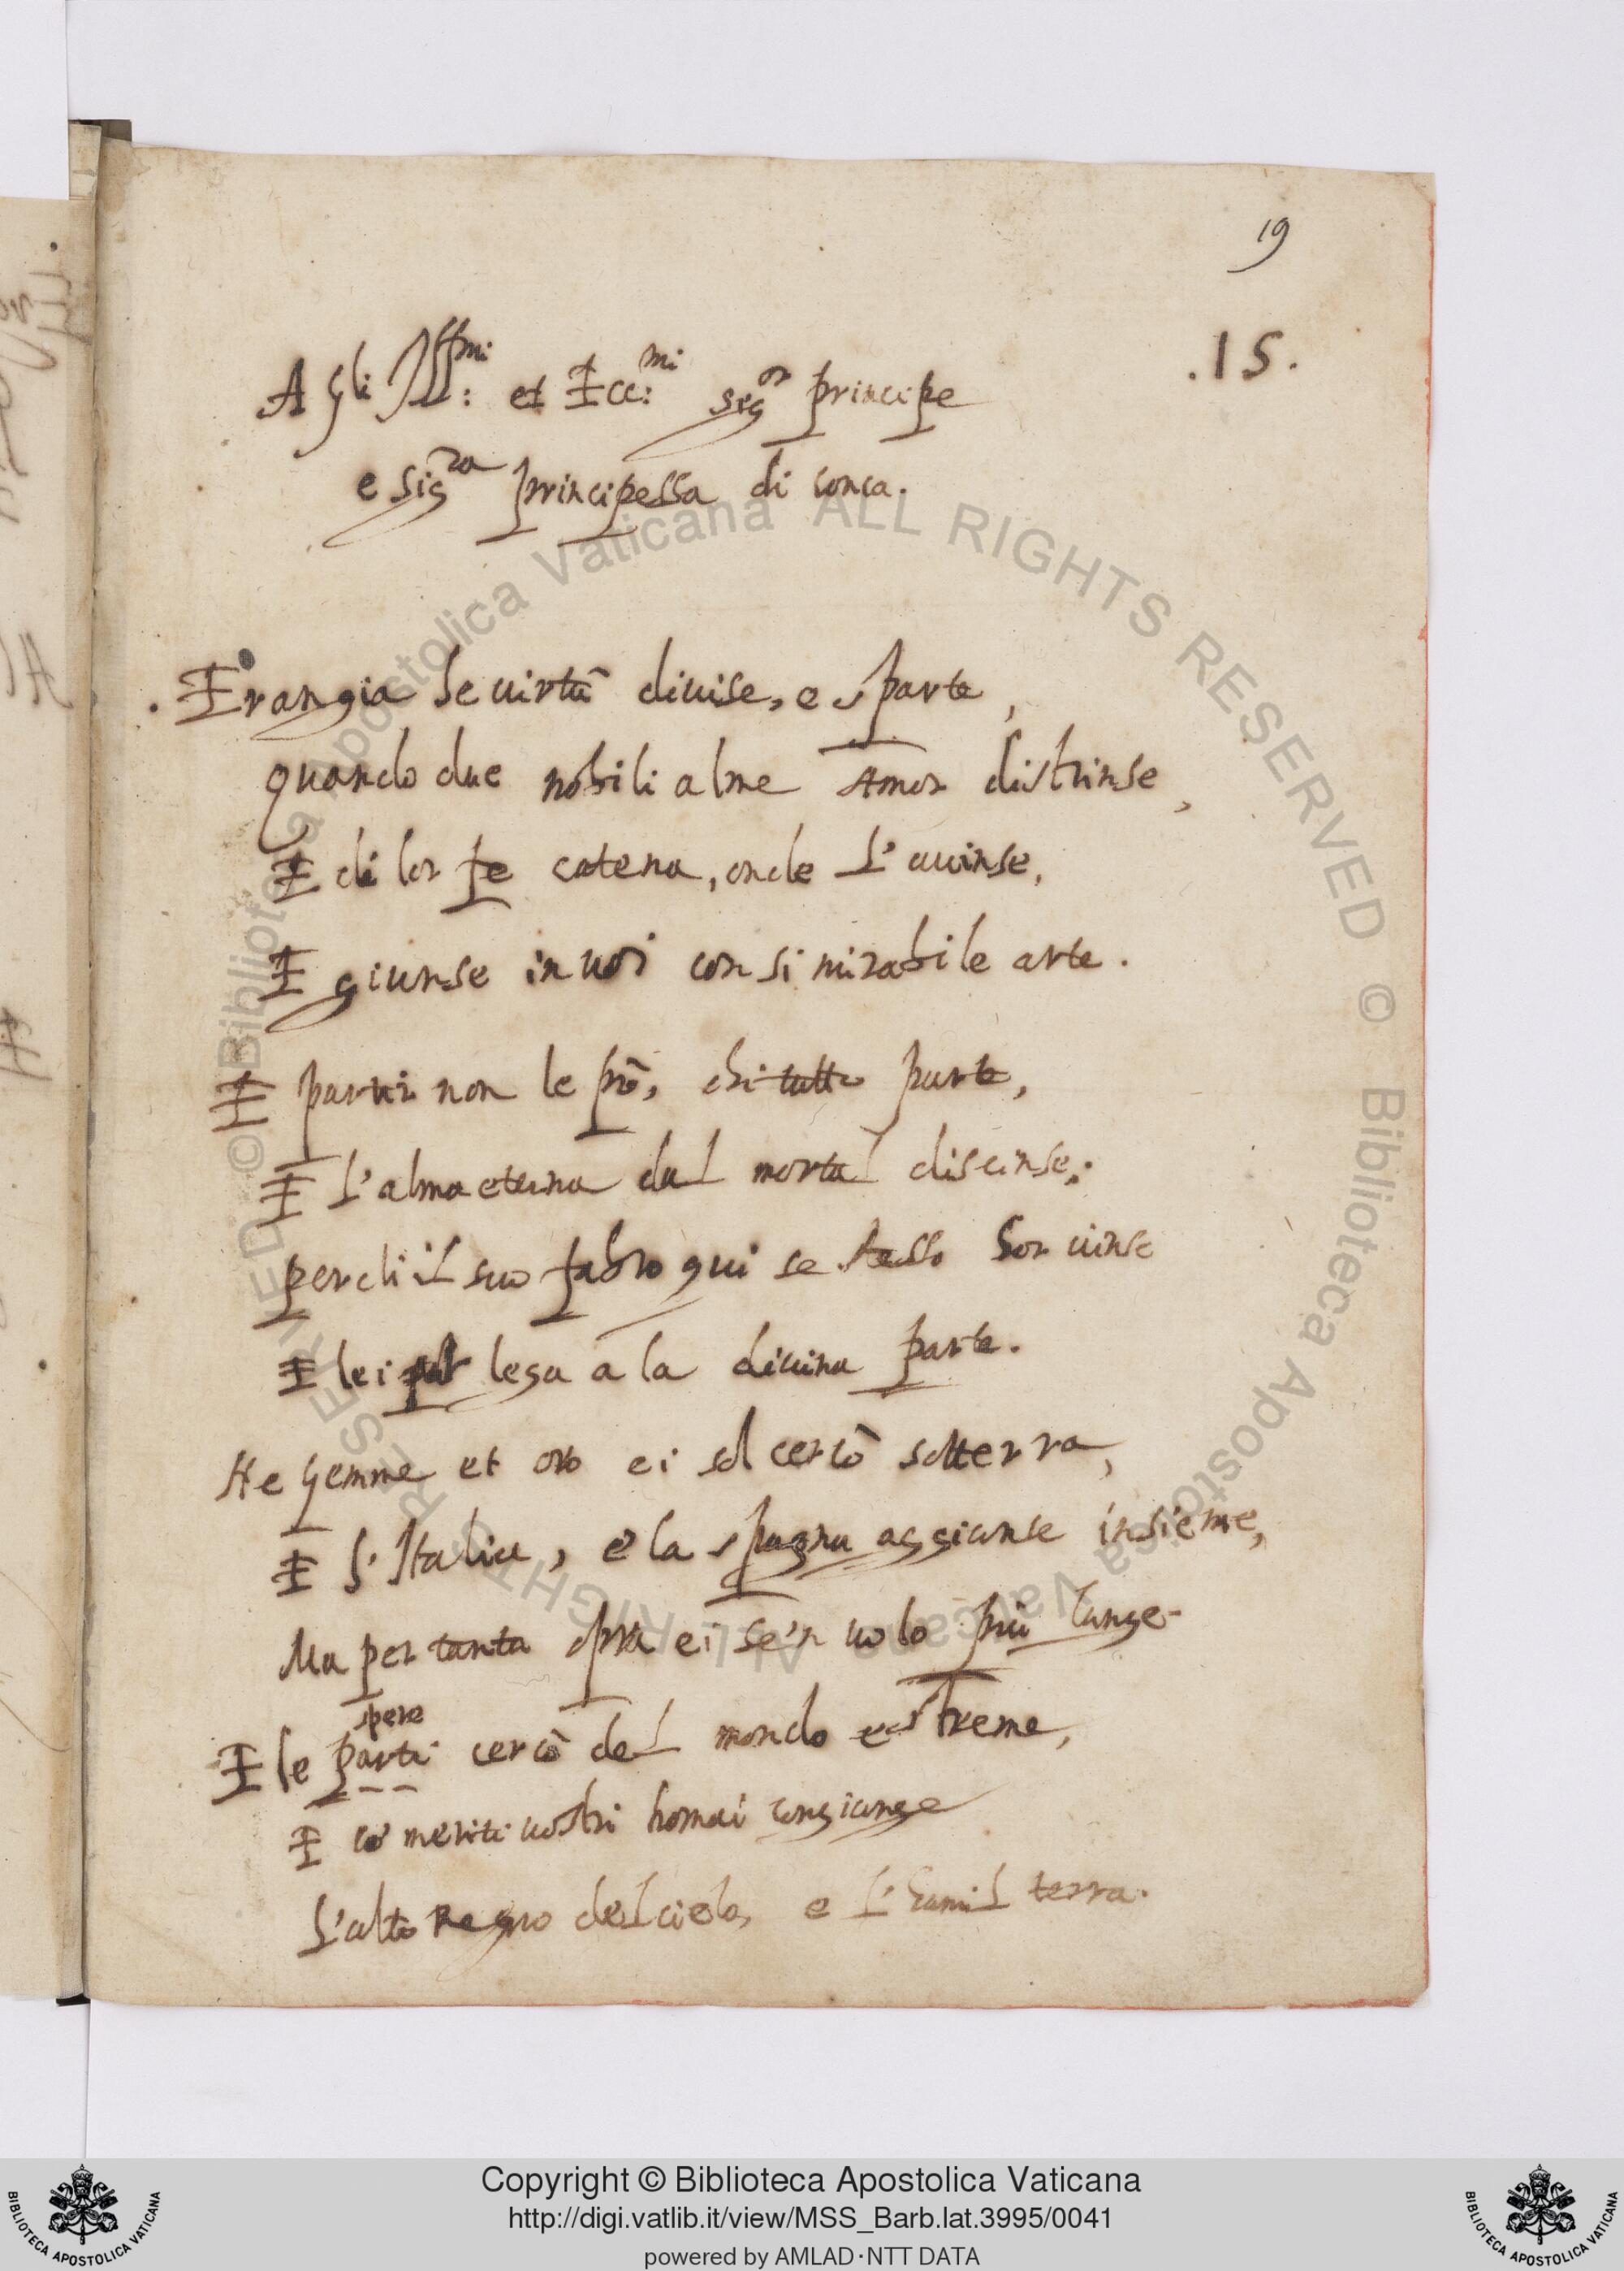 19
.15.
A gli Ill:mi et Ecc:mi sigor principe
e sigra principessa di conca.
Eran gia le uirtù diuise, e sparte,
quando due nobili alme Amor distrinse,
E di lor fe catena, onde l'auuinse,
E giunse in uoi con si mirabile arte.
E partir non le pò, chi tutto parte,
E l'alma eterna dal mortal discinse;
perch'il suo fabro qui se stesso hor uinse
E lei lega a la diuina parte.
Ne gemme et oro ei sol cercò sotterra,
E l'Italia, e la spagna aggiunse insieme,
Ma per tanta opra ei se'n uolò più lunge.
spere
E le parti cercò del mondo estreme,
E co' meriti uostri homai congiunge
L'alto Regno del cielo, e l'humil terra.
© Biblioteca Apostolica Vaticana ALL RIGHTS RESERVED © Biblioteca Apostolica Vaticana ALL RIGHTS RESERVED
Copyright © Biblioteca Apostolica Vaticana
http://digi.vatlib.it/view/MSS_Barb.lat.3995/0041
powered by AMLAD·NTT DATA
BIBLIOTECA APOSTOLICA VATICANA
BIBLIOTECA APOSTOLICA VATICANA